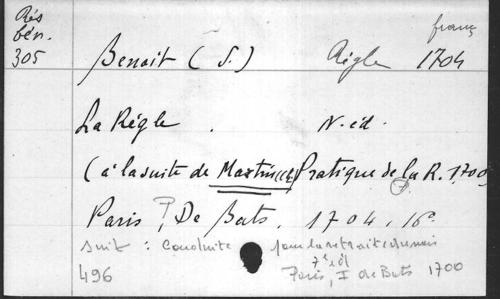 Rés
bén.
305
franç
Benoit (S.) Règle 1704
La Règle . N. éd.
(à la suite de Martin(Cl) Pratique de la R. 1700)
Paris, De Bats, 1704, 16°
suit : Conduite pour la retraite du mois
7e éd
496 Paris, I de Bats 1700